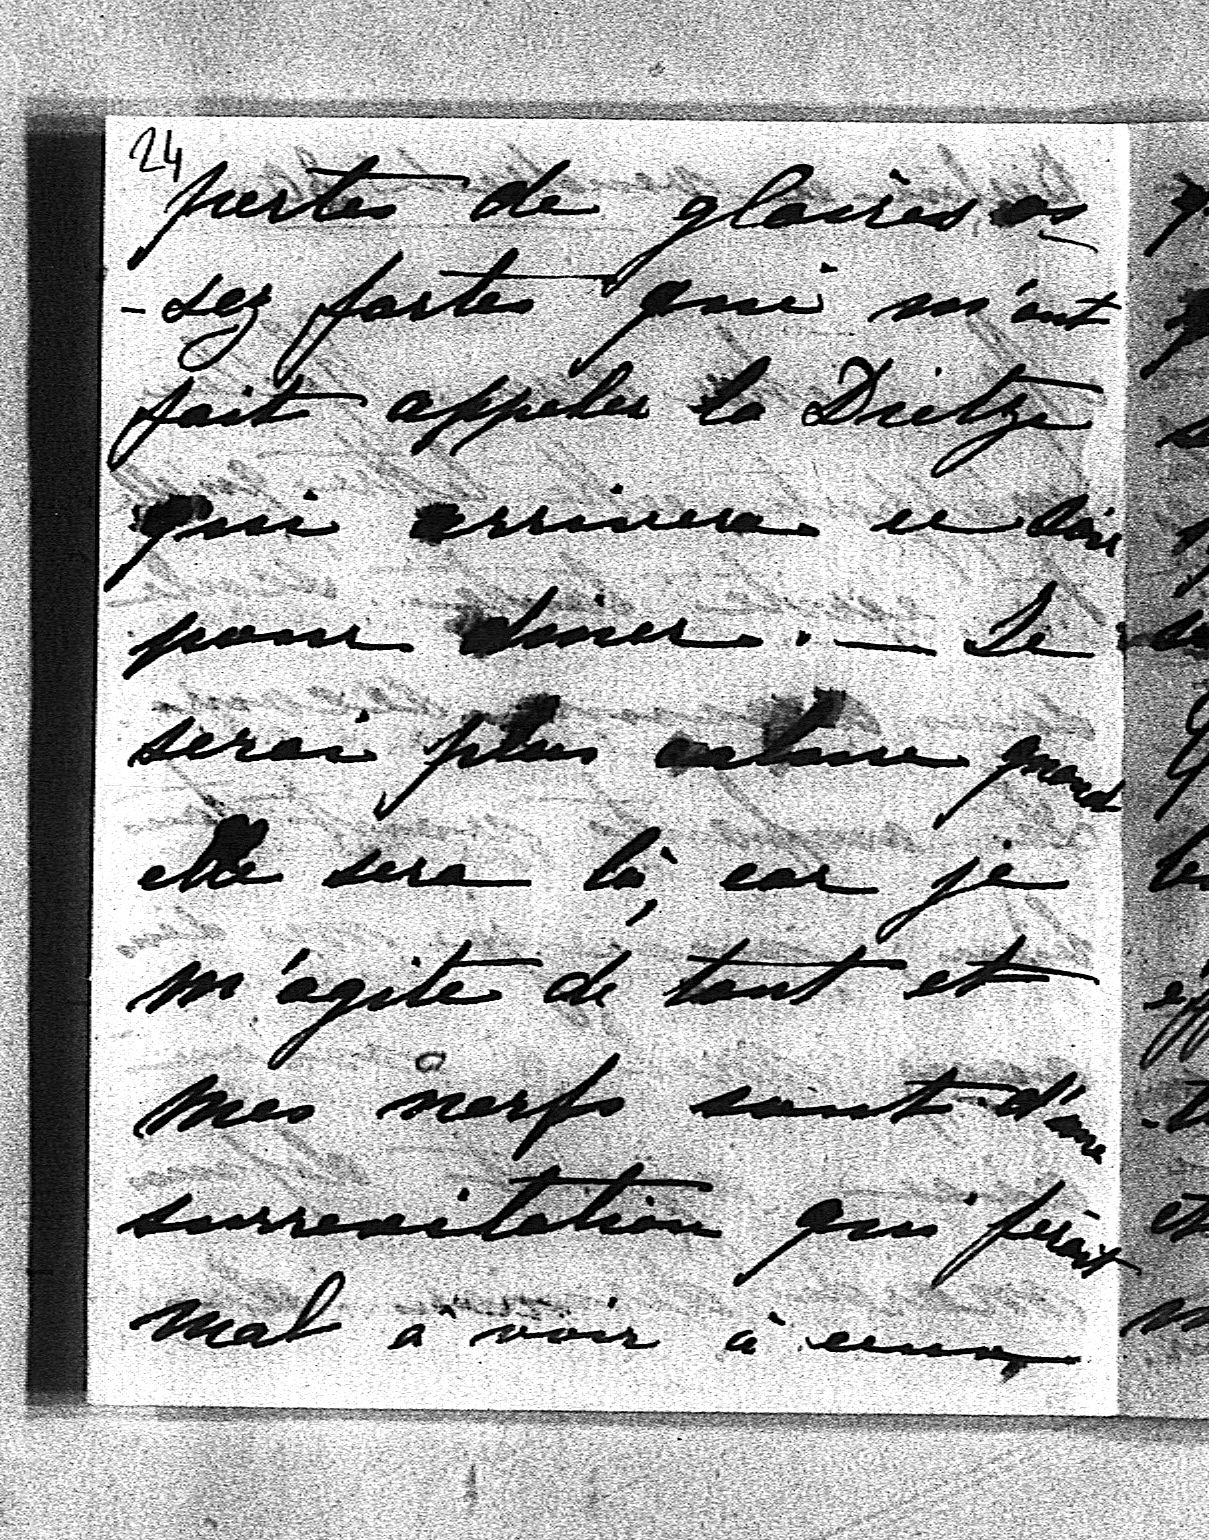 24
pertes de glaires as
- sez fortes qui m'ont
fait appeler la Dietze
qui arrivera ce soir
pour diner. — Je
serai plus calme quand
elle sera là, car je
m'agite de tout et
mes nerfs sont d'une
surrexitation qui ferait
mal à voir à ceux